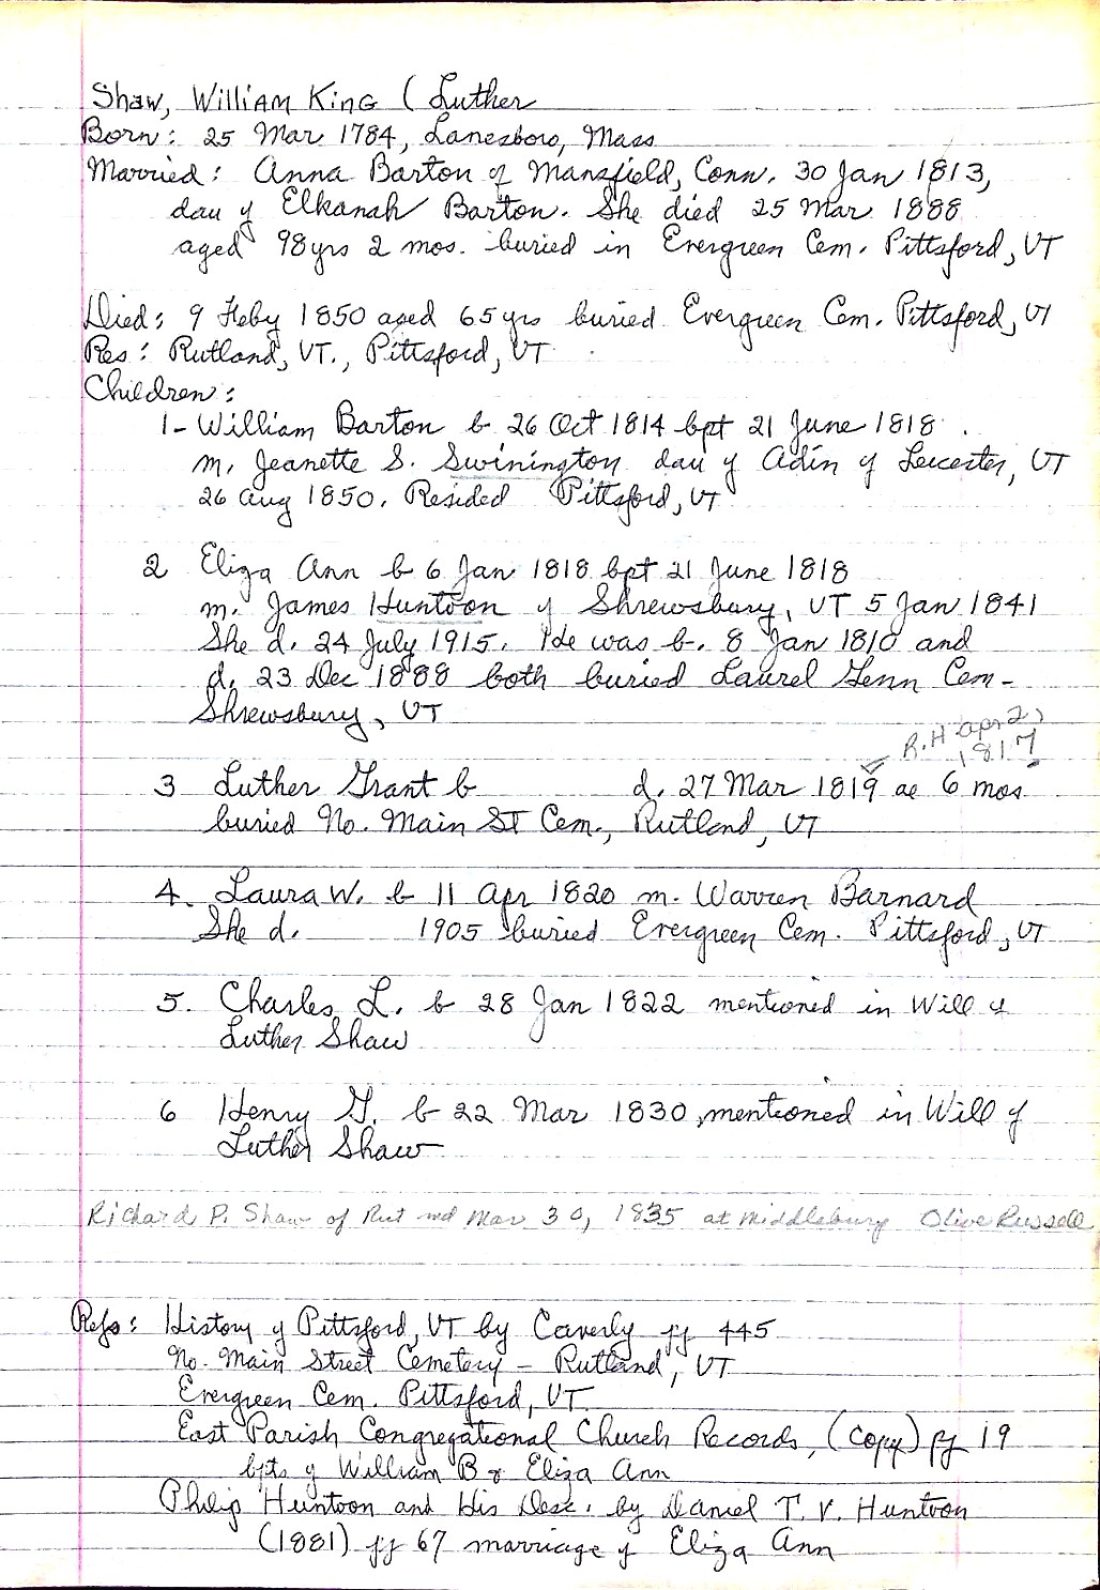 Shaw, William King (Luther
Born: 25 Mar 1784, Lanesboro, Mass
Married: Anna Barton of Mansfield, Conn. 30 Jan 1813,
dau of Elkanah Barton. She died 25 Mar 1888
aged 98yrs 2 mos. buried in Evergreen Cem. Pittsford, VT
Died: 9 Feby 1850 aged 65 yrs buried Evergreen Cem. Pittsford, VT
Res: Rutland, VT., Pittsford, VT
Children:
1- William Barton b 26 Oct 1814 bpt 21 June 1818
m. Jeanette S. Swinington dau of Adin of Leicester, VT
26 Aug 1850. Resided Pittsford, VT
2 Eliza Ann b 6 Jan 1818 bpt 21 June 1818
m. James Huntoon of Shrewsbury, VT 5 Jan 1841
She d. 24 July 1915. He was b. 8 Jan 1810 and
d. 23 Dec 1888 both buried Laurel Glenn Cem-
Shrewsbury, VT
R.H Apr 2,
1817
3 Luther Grant b d. 27 Mar 1819 ae 6 mos
buried No. Main ST Cem., Rutland, VT
4. Laura W. b 11 Apr 1820 m. Warren Barnard
She d. 1905 buried Evergreen Cem. Pittsford, VT
5. Charles L. b 28 Jan 1822 mentioned in Will of
Luther Shaw
6 Henry G. b 22 Mar 1830, mentioned in Will of
Luther Shaw
Richard P. Shaw of Rut md Mar 30, 1835 at Middlebury Olive Russell
Refs: History of Pittsford, VT by Caverly pg 445
No. Main Street Cemetery - Rutland, VT
Evergreen Cem. Pittsford, VT.
East Parish Congregational Church Records, (copy) pg 19
bpts of William B & Eliza Ann
Philip Huntoon and His Desc. by Daniel T. V. Huntoon
(1881) pg 67 marriage of Eliza Ann